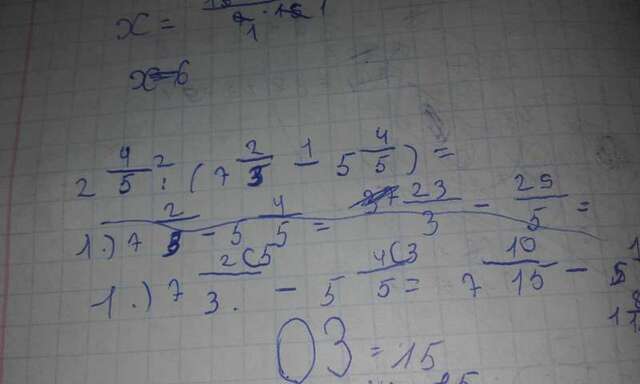 x =
x = 6
2 4/5 : (7 2/3 - 5 4/5) =
1.) 7 2/3 - 5 4/5 = 23/3 - 29/5 =
1.) 7 2(5/3. - 5 4(3/5 = 7 10/15 - 5
ОЗ = 15